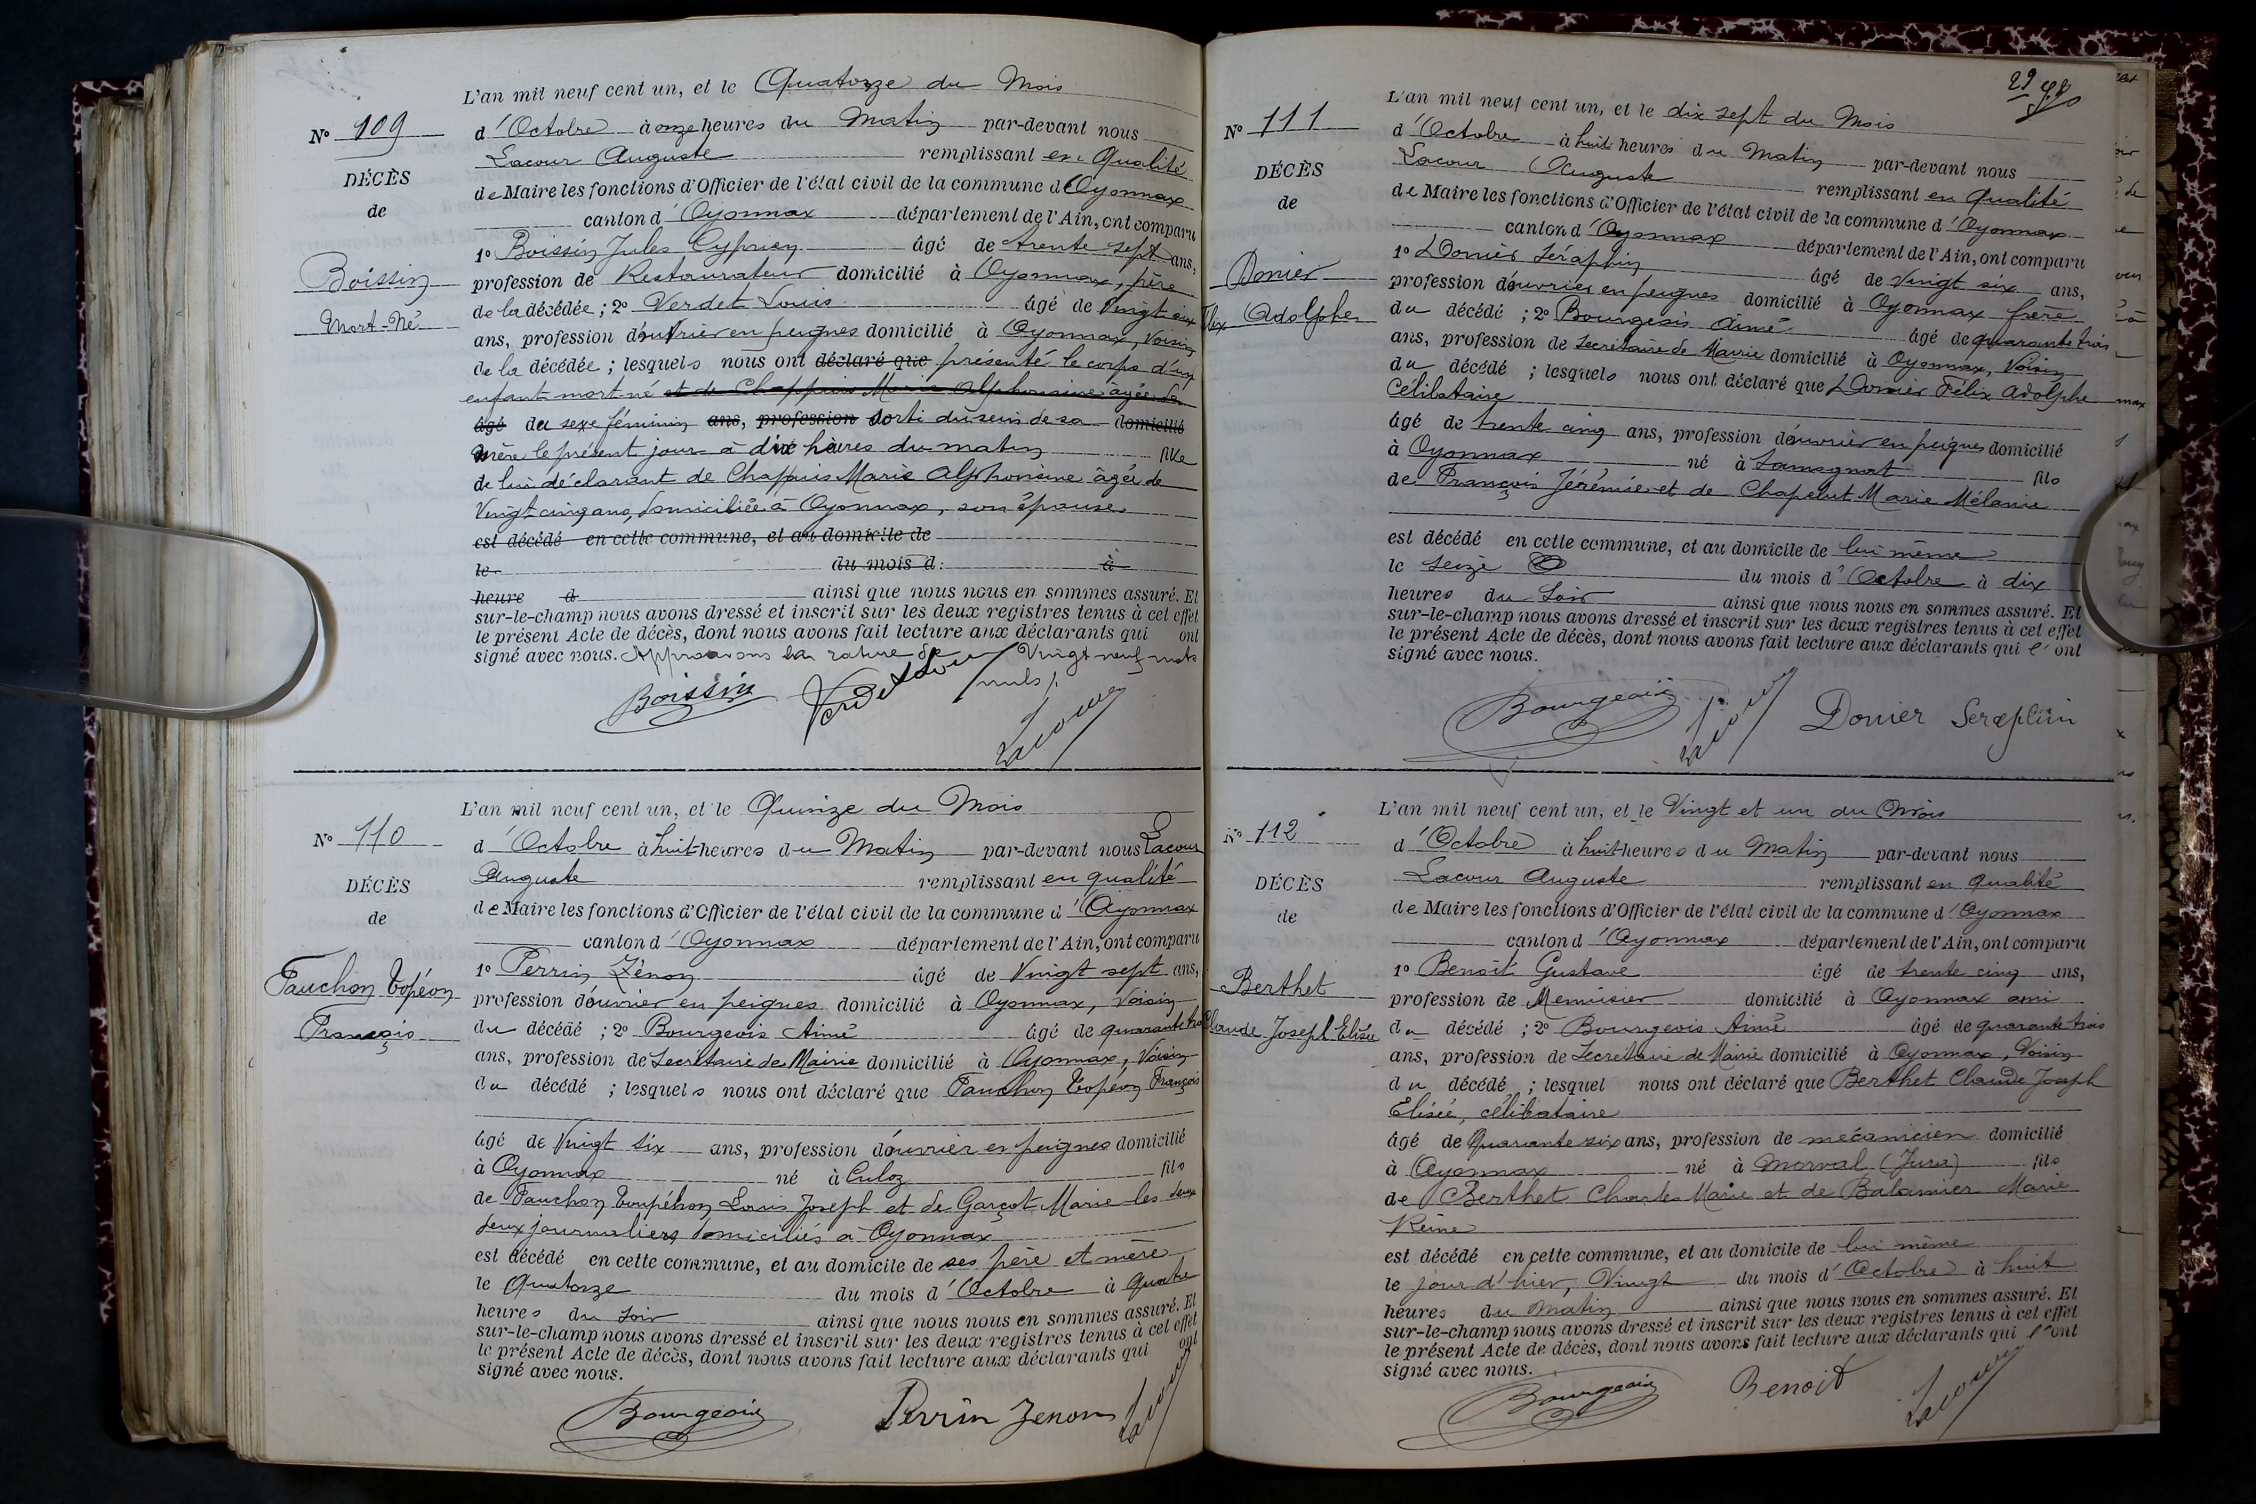 L'an mil neuf cent un, et le Quatorze du Mois
N° 109
d'Octobre à onze heures du Matin par-devant nous
Lacour Auguste remplissant en Qualité
DÉCÈS
de Maire les fonctions d'Officier de l'état civil de la commune d'Oyonnax
de
canton d'Oyonnax département de l'Ain, ont comparu
1° Boissin Jules Cyprien âgé de trente sept ans,
Boissin
profession de Restaurateur domicilié à Oyonnax, père
de la décédée ; 2° Verdet Louis âgé de Vingt
Mort-Né
ans, profession d'ouvrier en peignes domicilié à Oyonnax, Voisin
de la décédée ; lesquels nous ont déclaré que présenté le corps d'un
enfant mort né et de Chappuis Marie Alphonsine âgée de
âgé du sexe féminin ans, profession sorti du sein de sa domicilié
mère le présent jour à dix heures du matin fille
de lui déclarant et de Chappuis Marie Alphonsine âgée de
Vingt cinq ans, domiciliée à Oyonnax, son épouse
est décédé en cette commune, et au domicile de
le du mois d à
heure d ainsi que nous nous en sommes assuré. Et
sur-le-champ nous avons dressé et inscrit sur les deux registres tenus à cet effet
le présent Acte de décès, dont nous avons fait lecture aux déclarants qui ont
signé avec nous. Approuvons la rature de Vingt neuf mots
nuls
Boissin Verdet Louis
Lacour
L'an mil neuf cent un, et le Quinze du Mois
N° 110
d'Octobre à huit heures du Matin par-devant nous Lacour
Auguste remplissant en qualité
DÉCÈS
de Maire les fonctions d'Officier de l'état civil de la commune d'Oyonnax
de
canton d'Oyonnax département de l'Ain, ont comparu
1° Perrin Zénon âgé de Vingt sept ans,
Fauchon Topéon
profession d'ouvrier en peignes domicilié à Oyonnax, Voisin
François
du décédé ; 2° Bourgeois Aimé âgé de quarante trois
ans, profession de Secrétaire de Mairie domicilié à Oyonnax, Voisin
du décédé ; lesquels nous ont déclaré que Fauchon Topéon François
âgé de Vingt six ans, profession d'ouvrier en peignes domicilié
à Oyonnax né à Culoz fils
de Fauchon Toupéhon Louis Joseph et de Garçot Marie les deux
deux journaliers domiciliés à Oyonnax
est décédé en cette commune, et au domicile de ses père et mère
le Quatorze du mois d'Octobre à Quatre
heures du Soir ainsi que nous nous en sommes assuré. Et
sur-le-champ nous avons dressé et inscrit sur les deux registres tenus à cet effet
le présent Acte de décès, dont nous avons fait lecture aux déclarants qui ont
signé avec nous.
Bourgeois Perrin Zenon Lacour
29
L'an mil neuf cent un, et le dix sept du Mois
N° 111
d'Octobre à huit heures du Matin par-devant nous
Lacour Auguste remplissant en Qualité
DÉCÈS
de Maire les fonctions d'Officier de l'état civil de la commune d'Oyonnax
de
canton d'Oyonnax département de l'Ain, ont comparu
1° Donier Séraphin âgé de Vingt six ans,
Donier
profession d'ouvrier en peignes domicilié à Oyonnax frère
Félix Adolphe
du décédé ; 2° Bourgeois Aimé âgé de quarante trois
ans, profession de Secrétaire de Mairie domicilié à Oyonnax, Voisin
du décédé ; lesquels nous ont déclaré que Donier Félix Adolphe
Célibataire
âgé de trente cinq ans, profession d'ouvrier en peignes domicilié
à Oyonnax né à Samognat fils
de François Jérémie et de Chapelut Marie Mélanie
est décédé en cette commune, et au domicile de lui même
le Seize du mois d'Octobre à dix
heures du Soir ainsi que nous nous en sommes assuré. Et
sur-le-champ nous avons dressé et inscrit sur les deux registres tenus à cet effet
le présent Acte de décès, dont nous avons fait lecture aux déclarants qui l'ont
signé avec nous.
Bourgeois Lacour Donier Seraphin
L'an mil neuf cent un, et le Vingt et un du Mois
N° 112
d'Octobre à huit heures du Matin par-devant nous
Lacour Auguste remplissant en qualité
DÉCÈS
de Maire les fonctions d'Officier de l'état civil de la commune d'Oyonnax
de
canton d'Oyonnax département de l'Ain, ont comparu
1° Benoît Gustave âgé de trente cinq ans,
Berthet
profession de Menuisier domicilié à Oyonnax ami
Claude Joseph Elisée
du décédé ; 2° Bourgeois Aimé âgé de quarante trois
ans, profession de Secrétaire de Mairie domicilié à Oyonnax, Voisin
du décédé ; lesquel nous ont déclaré que Berthet Claude Joseph
Elisée, célibataire
âgé de Quarante six ans, profession de mécanicien domicilié
à Oyonnax né à Morval (Jura) fils
de Berthet Charles Marie et de Marie
Reine
est décédé en cette commune, et au domicile de lui même
le jour d'hier, Vingt du mois d'Octobre à huit
heures du matin ainsi que nous nous en sommes assuré. Et
sur-le-champ nous avons dressé et inscrit sur les deux registres tenus à cet effet
le présent Acte de décès, dont nous avons fait lecture aux déclarants qui l'ont
signé avec nous.
Bourgeois Benoit Lacour